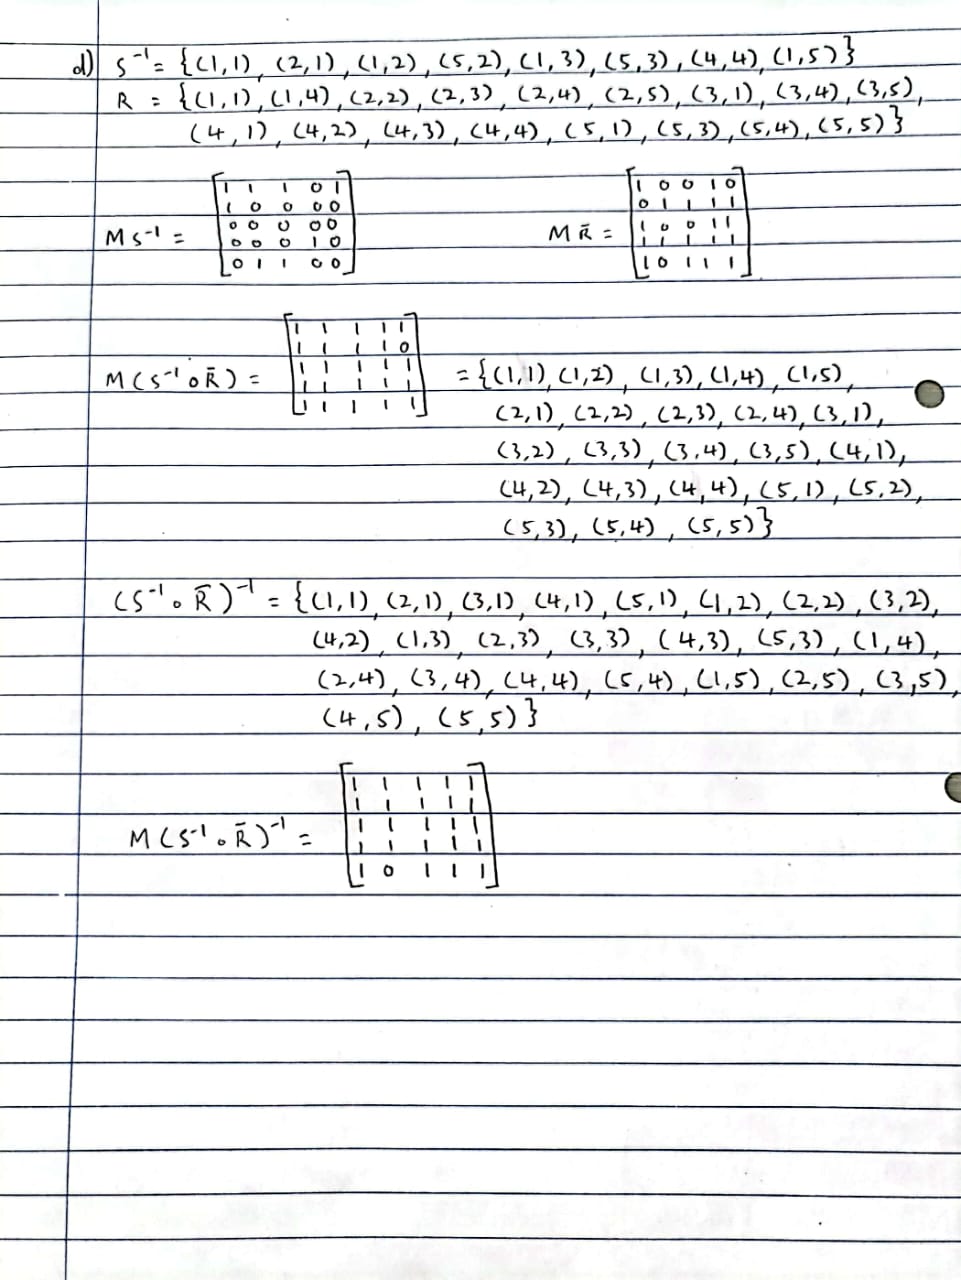 d) S⁻¹ = {(1,1), (2,1), (1,2), (5,2), (1,3), (5,3), (4,4), (1,5)}
R = {(1,1), (1,4), (2,2), (2,3), (2,4), (2,5), (3,1), (3,4), (3,5),
(4,1), (4,2), (4,3), (4,4), (5,1), (5,3), (5,4), (5,5)}
M S⁻¹ =
1 1 1 0 1
1 0 0 0 0
0 0 0 0 0
0 0 0 1 0
0 1 1 0 0
M R̄ =
1 0 0 1 0
0 1 1 1 1
1 0 0 1 1
1 1 1 1 1
1 0 1 1 1
M(S⁻¹∘R̄) =
1 1 1 1 1
1 1 1 1 0
1 1 1 1 1
1 1 1 1 1
1 1 1 1 1
= {(1,1), (1,2), (1,3), (1,4), (1,5),
(2,1), (2,2), (2,3), (2,4), (3,1),
(3,2), (3,3), (3,4), (3,5), (4,1),
(4,2), (4,3), (4,4), (5,1), (5,2),
(5,3), (5,4), (5,5)}
(S⁻¹∘R̄)⁻¹ = {(1,1), (2,1), (3,1), (4,1), (5,1), (1,2), (2,2), (3,2),
(4,2), (1,3), (2,3), (3,3), (4,3), (5,3), (1,4),
(2,4), (3,4), (4,4), (5,4), (1,5), (2,5), (3,5),
(4,5), (5,5)}
M(S⁻¹∘R̄)⁻¹ =
1 1 1 1 1
1 1 1 1 1
1 1 1 1 1
1 1 1 1 1
1 0 1 1 1